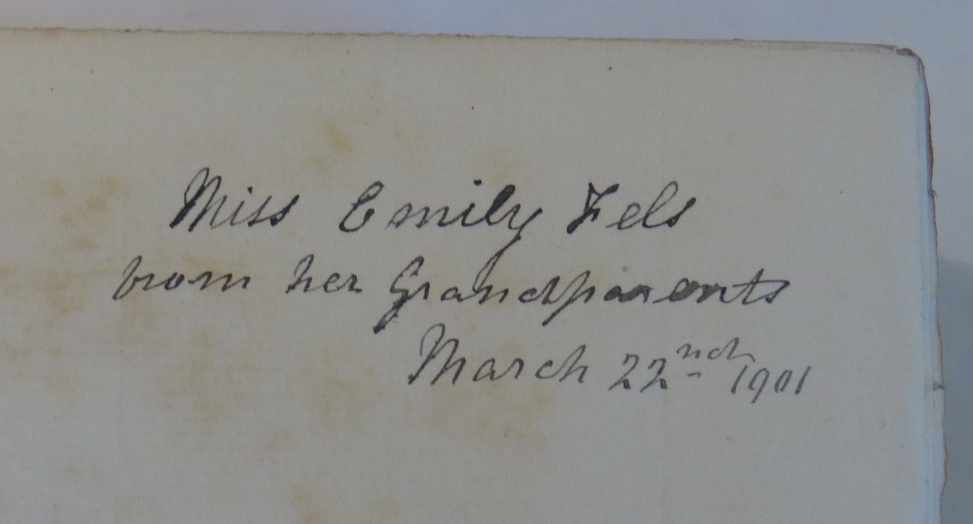 Miss Emily Fels
from her Grandparents
March 22nd 1901